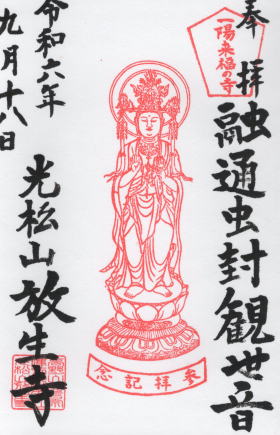 奉拝
一陽来福の寺
融通虫封観世音
参拝記念
光松山放生寺
令和六年
九月十八日